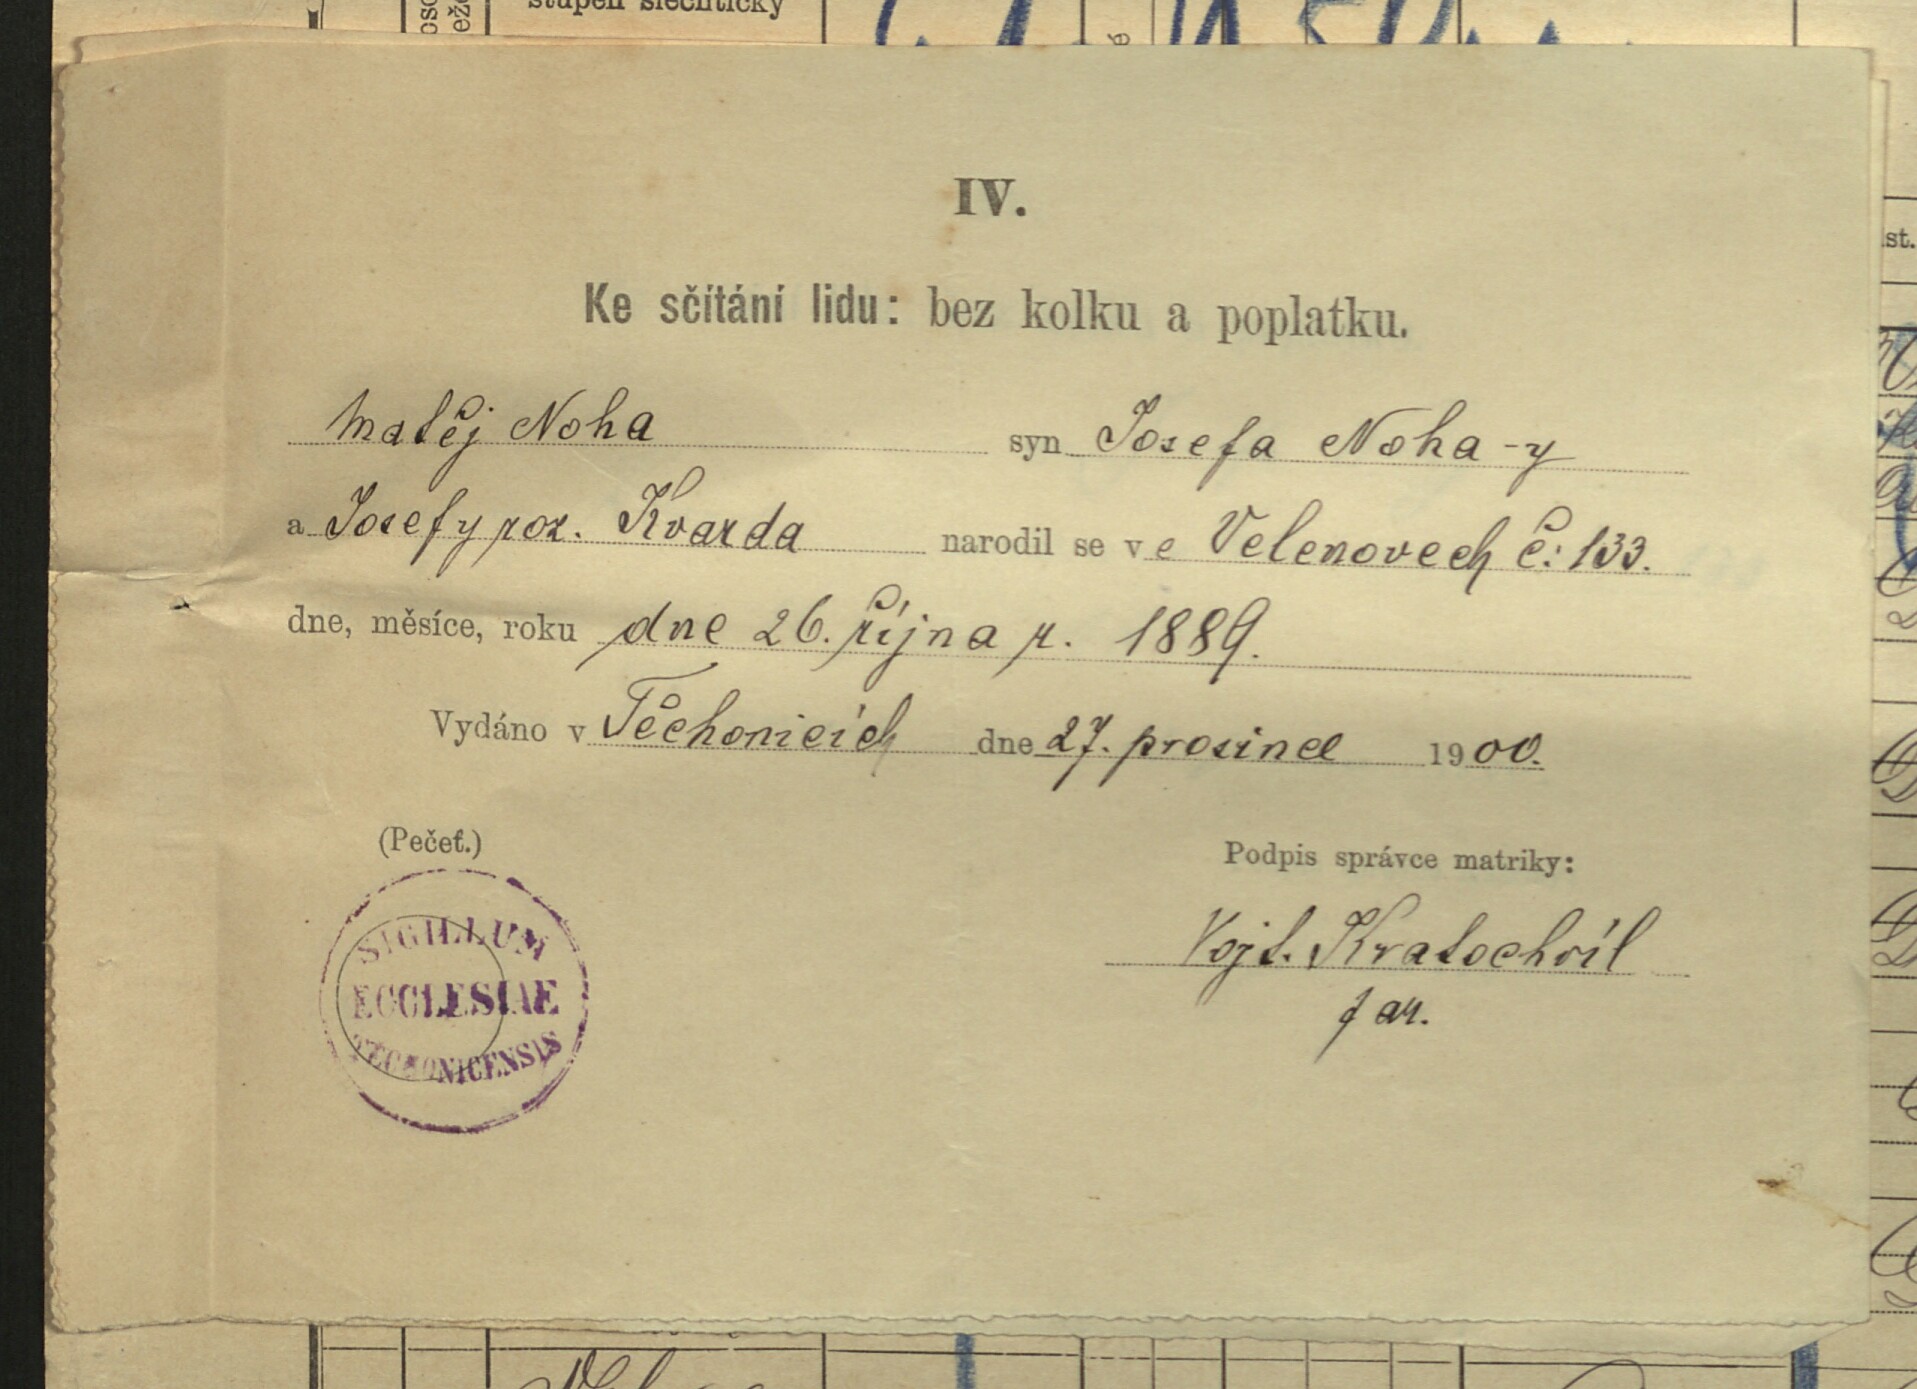 stupeň šlechtický
IV.
Ke sčítání lidu: bez kolku a poplatku.
Matěj Noha syn Josefa Noha-y
a Josefy roz. Kvarda narodil se ve Velenovech č: 133.
dne, měsíce, roku dne 26. října r. 1889.
Vydáno v Těchonicích dne 27. prosince 1900.
(Pečeť.)
Podpis správce matriky:
SIGILLUM
ECCLESIAE
TECHONICENSIS
Vojt. Kratochvíl
far.
st.